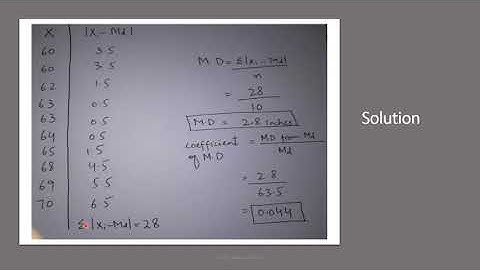 X |Xi-Md|
60 3.5
60 3.5
62 1.5
63 0.5
63 0.5
64 0.5
65 1.5
68 4.5
69 5.5
70 6.5
Σ|Xi-Md|=28
M.D = Σ|Xi-Md|
n
= 28
10
M.D = 2.8 Inches
coefficient of M.D = M.D from Md
Md
= 2.8
63.5
= 0.044
Solution